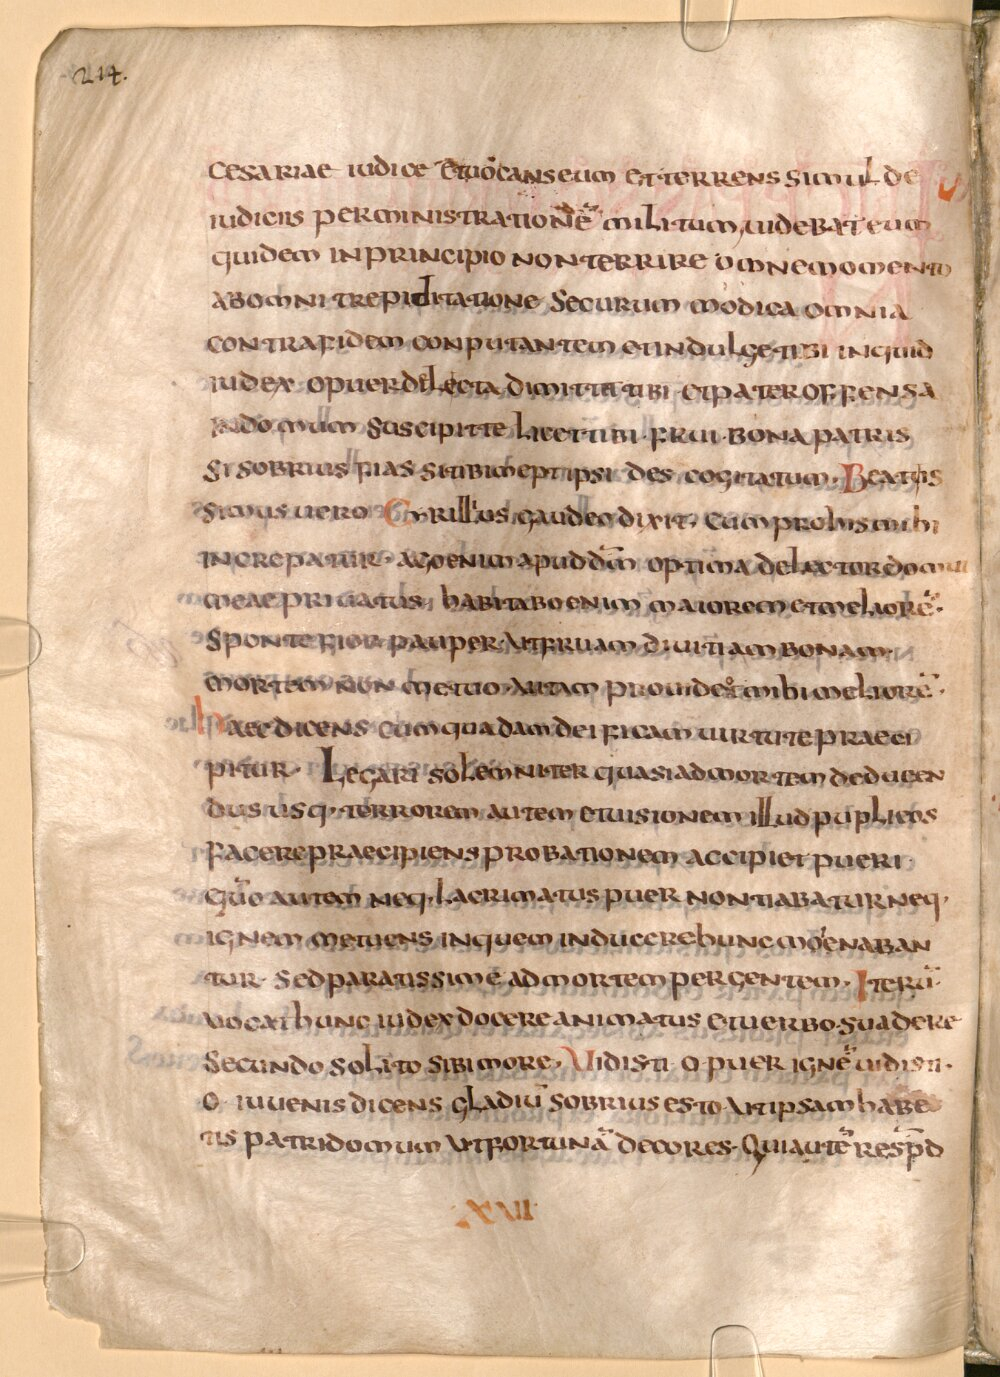 214.
cesariae iudice et uocans eum et terrens simul de
iudiciis per ministrationē militum, uidebat eum
quidem in principio non terrire omnem omento
ab omni trepiditatione securum modica omnia
contra fidem conputantem et indulge tibi inquid
iudex o puer dilecta dimittit tibi et pater offensa
in domum suscipitte licet tibi frui bona patris
si sobrius fias si tibimeptipsi des cogitatum. Beatis
simus uero Cyrillus gaudeo dixit cum probus mihi
increpatur. ago enim apud dm̄ optima delector domui
meae priuatus, habitabo enim maiorem et meliorē.
sponte fior pauper ut fruam diuitiam bonam.
mortem non metuo uitam prouideo mihi meliorē.
haec dicens cum quadam deificam uirtute praeci
pitur. Legari solemniter quasi ad mortem deducen
dus usq. terrorem autem et uisionem illud puplicos
facere praecipiens probationem accipiet pueri
quo autem neq. lacrimatus puer nontiabatur neq.
ignem metuens in quem inducere hunc moenaban
tur. sed paratissime ad mortem pergentem. Iterū.
uocat hunc iudex docere animatus et uerbo suadere
secundo solito sibi more. Vidisti o puer ignē uidisti.
o iuuenis dicens gladiū sobrius esto ut ipsam habe
tis patri domum ut fortunā decores. Qui autē respd
XVII